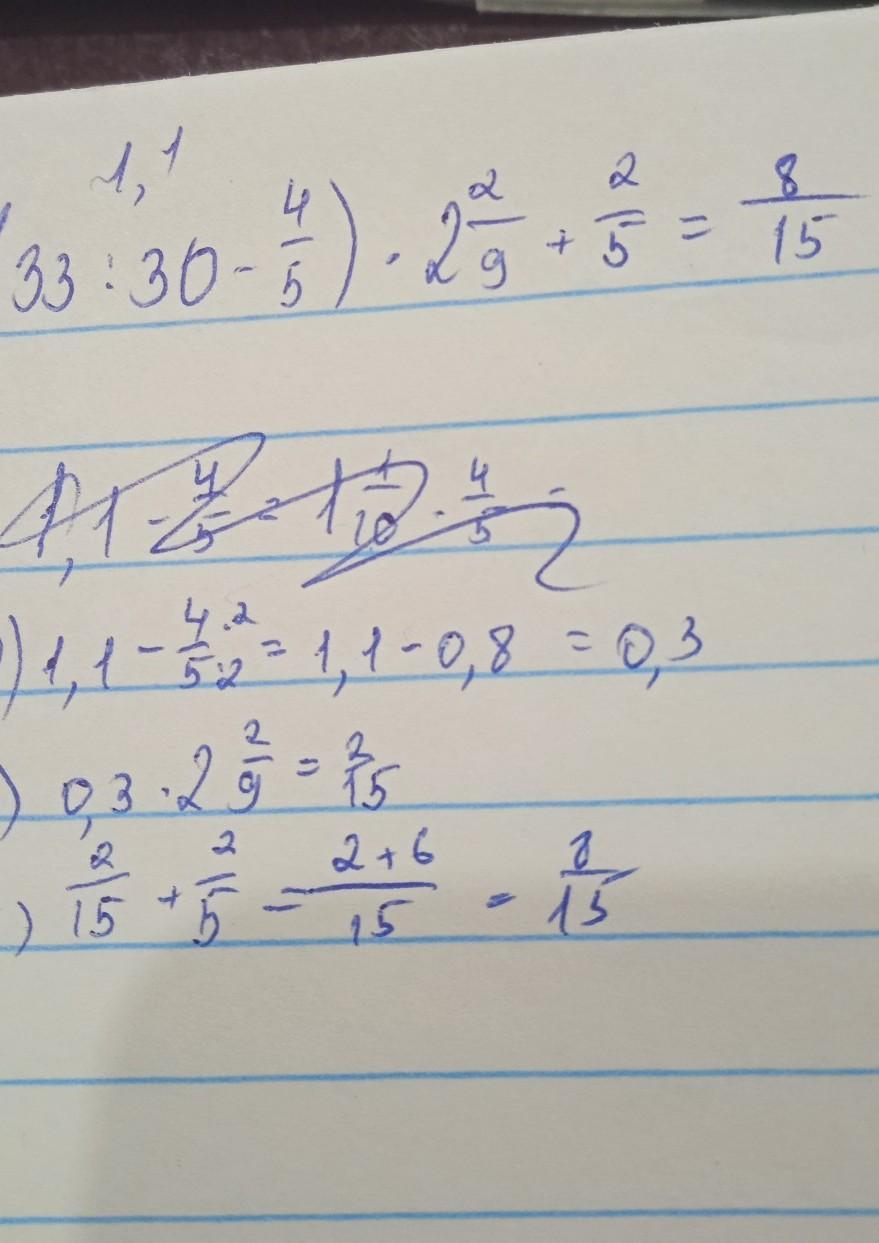 1,1
(33 : 30 - 4/5) · 2 2/9 + 2/5 = 8/15
1,1 - 4/5 = 1 1/10 - 4/5 =
) 1,1 - 4·2/5·2 = 1,1 - 0,8 = 0,3
) 0,3 · 2 2/9 = 2/15
) 2/15 + 2/5 = 2+6/15 = 8/15